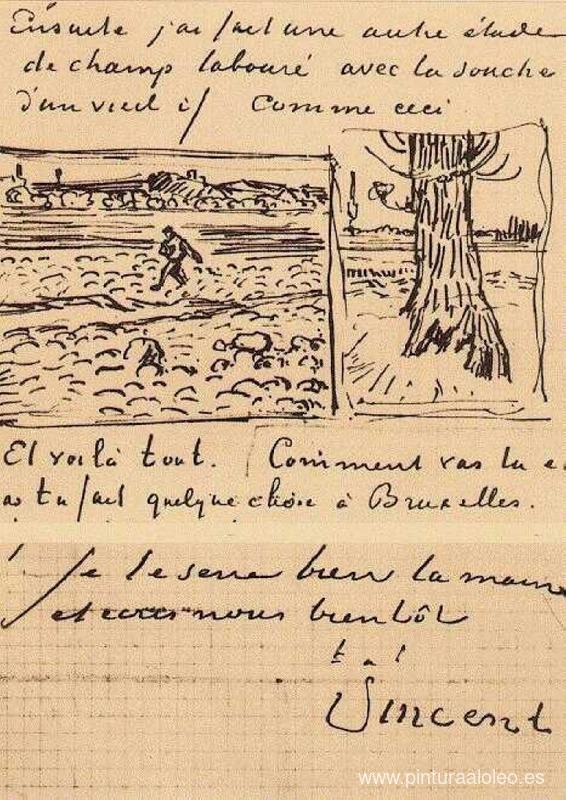 Ensuite j'ai fait une autre étude
de champ labouré avec la souche
d'un vieil if comme ceci
Et voilà tout. Comment vas tu e
as tu fait quelque chose à Bruxelles.
Je te serre bien la main
et nous bientôt
t. à t.
Vincent
www.pinturaaloleo.es